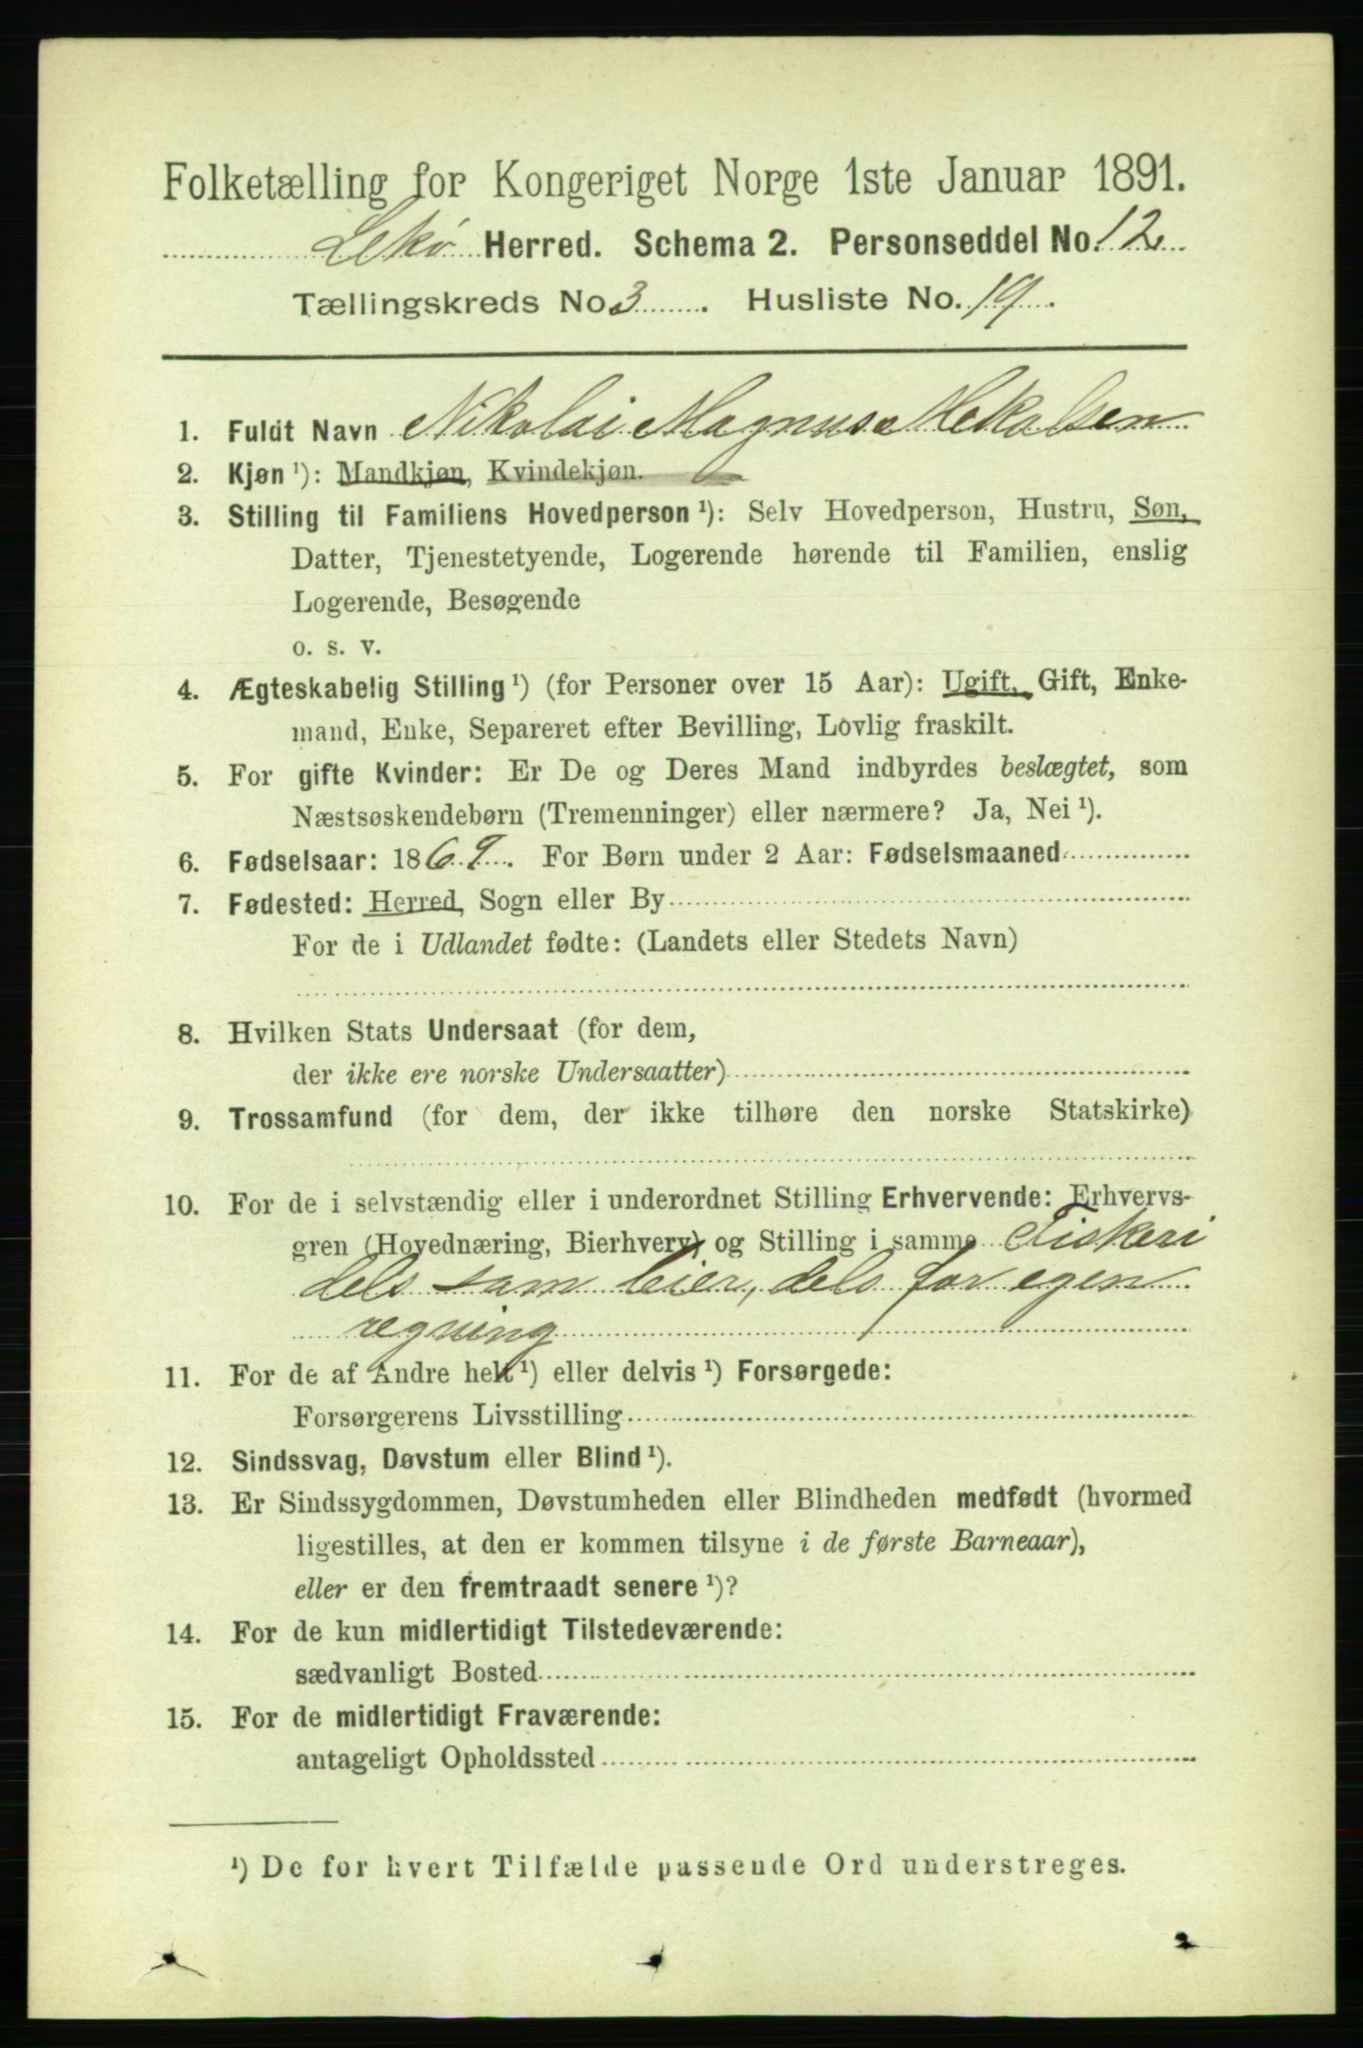 Folketælling for Kongeriget Norge 1ste Januar 1891.
Lekø Herred. Schema 2. Personseddel No. 12
Tællingskreds No. 3. Husliste No. 19.
1. Fuldt Navn Nikolai Magnus
2. Kjøn ¹): Mandkjøn, Kvindekjøn.
3. Stilling til Familiens Hovedperson ¹): Selv Hovedperson, Hustru, Søn,
Datter, Tjenestetyende, Logerende hørende til Familien, enslig
Logerende, Besøgende
o. s. v.
4. Ægteskabelig Stilling ¹) (for Personer over 15 Aar): Ugift, Gift, Enke-
mand, Enke, Separeret efter Bevilling, Lovlig fraskilt.
5. For gifte Kvinder: Er De og Deres Mand indbyrdes beslægtet, som
Næstsøskendebørn (Tremenninger) eller nærmere? Ja, Nei ¹).
6. Fødselsaar: 1869. For Børn under 2 Aar: Fødselsmaaned
7. Fødested: Herred, Sogn eller By
For de i Udlandet fødte: (Landets eller Stedets Navn)
8. Hvilken Stats Undersaat (for dem,
der ikke ere norske Undersaatter)
9. Trossamfund (for dem, der ikke tilhøre den norske Statskirke)
10. For de i selvstændig eller i underordnet Stilling Erhvervende: Erhvervs-
gren (Hovednæring, Bierhverv) og Stilling i samme Fiskeri
dels som leier, dels for egen
regning
11. For de af Andre helt ¹) eller delvis ¹) Forsørgede:
Forsørgerens Livsstilling
12. Sindssvag, Døvstum eller Blind ¹).
13. Er Sindssygdommen, Døvstumheden eller Blindheden medfødt (hvormed
ligestilles, at den er kommen tilsyne i de første Barneaar),
eller er den fremtraadt senere ¹)?
14. For de kun midlertidigt Tilstedeværende:
sædvanligt Bosted
15. For de midlertidigt Fraværende:
antageligt Opholdssted
¹) De for hvert Tilfælde passende Ord understreges.